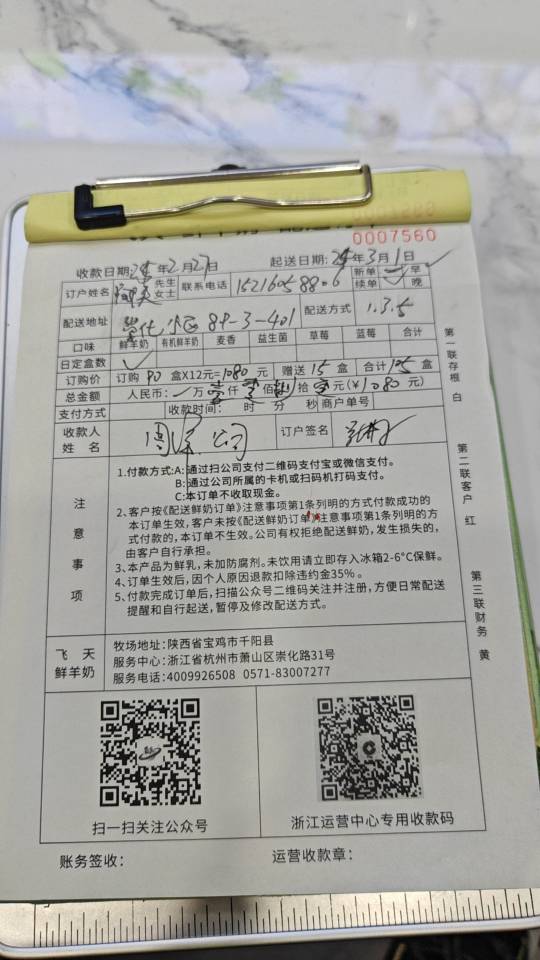 0007560
收款日期: 年2月27日 起送日期: 年3月1日
订户姓名 先生 女士 联系电话 15216058806 新单 续单 早 晚
配送地址 崇化小区 89-3-401 配送方式 1.3.5
口味 鲜羊奶 有机鲜羊奶 麦香 益生菌 草莓 蓝莓 合计
日定盒数 ✓
订购价 订购 90 盒X12元=1080 元 赠送 15 盒 合计 105 盒
总金额 人民币: 万 壹 仟 零 佰 捌 拾 零 元(¥1080 元)
支付方式 收款时间: 时 分 秒 商户单号
收款人姓名 公司 订户签名
注意事项
1.付款方式:A:通过扫公司支付二维码支付宝或微信支付。
B:通过公司所属的卡机或扫码机打码支付。
C:本订单不收取现金。
2、客户按《配送鲜奶订单》注意事项第1条列明的方式付款成功的
本订单生效,客户未按《配送鲜奶订单》注意事项第1条列明的方
式付款的,本订单不生效。公司有权拒绝配送鲜奶,发生损失的,
由客户自行承担。
3、本产品为鲜乳,未加防腐剂。未饮用请立即存入冰箱2-6°C保鲜。
4、订单生效后,因个人原因退款扣除违约金35%。
5、付款完成订单后,扫描公众号二维码关注并注册,方便日常配送
提醒和自行起送,暂停及修改配送方式。
飞天
鲜羊奶
牧场地址:陕西省宝鸡市千阳县
服务中心:浙江省杭州市萧山区崇化路31号
服务电话:4009926508 0571-83007277
扫一扫关注公众号
浙江运营中心专用收款码
账务签收: 运营收款章:
第一联存根 白
第二联客户 红
第三联财务 黄